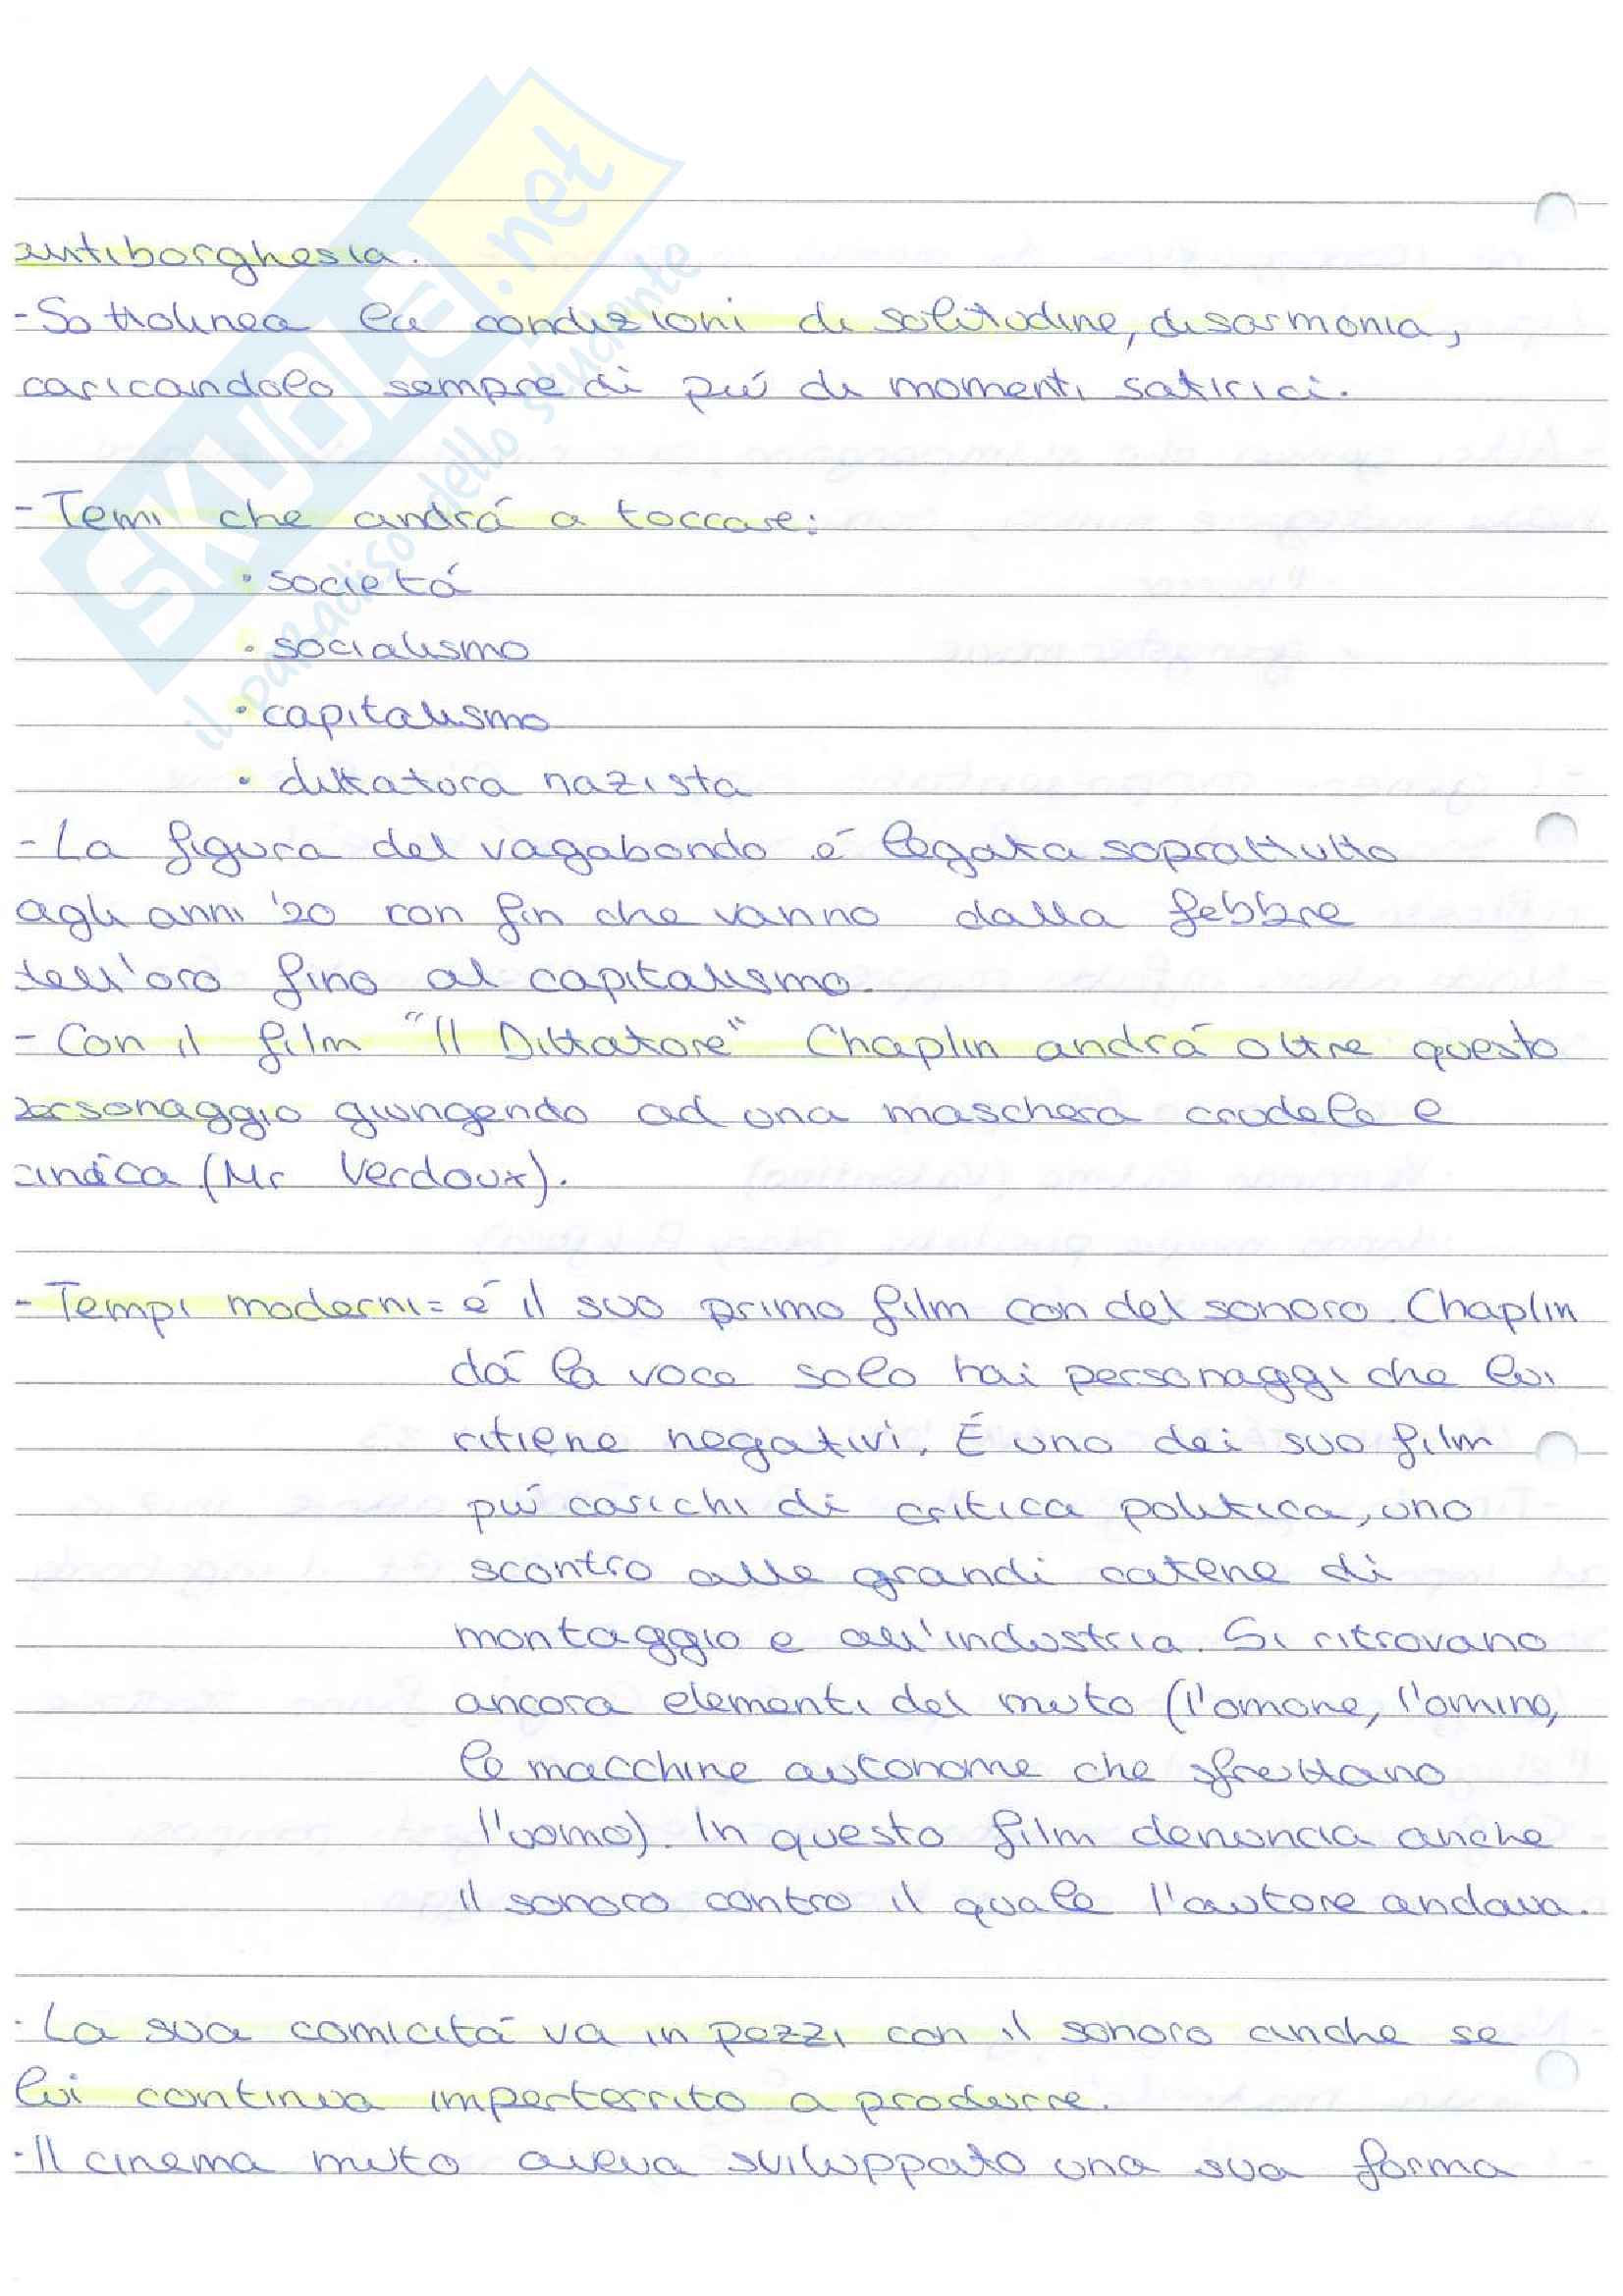 antiborghesia.
- Sottolinea le condizioni di solitudine, disarmonia,
caricandolo sempre di piú di momenti satirici.
- Temi che andrá a toccare:
• societá
• socialismo
• capitalismo
• dittatura nazista
- La figura del vagabondo é legata soprattutto
agli anni '20 con fin che vanno dalla febbre
dell'oro fino al capitalismo.
- Con il film "Il Dittatore" Chaplin andrá oltre questo
personaggio giungendo ad una maschera crudele e
cinica (Mr Verdoux).
- Tempi moderni = é il suo primo film con del sonoro. Chaplin
dá la voce solo hai personaggi che lui
ritiene negativi. É uno dei suo film
piú carichi di critica politica, uno
scontro alle grandi catene di
montaggio e all'industria. Si ritrovano
ancora elementi del muto (l'omone, l'omino,
le macchine autonome che sfruttano
l'uomo). In questo film denuncia anche
il sonoro contro il quale l'autore andava.
- La sua comicitá va in pezzi con il sonoro anche se
lui continua imperterrito a produrre.
- Il cinema muto aveva sviluppato una sua forma
SKUOLA.net
il paradiso dello studente